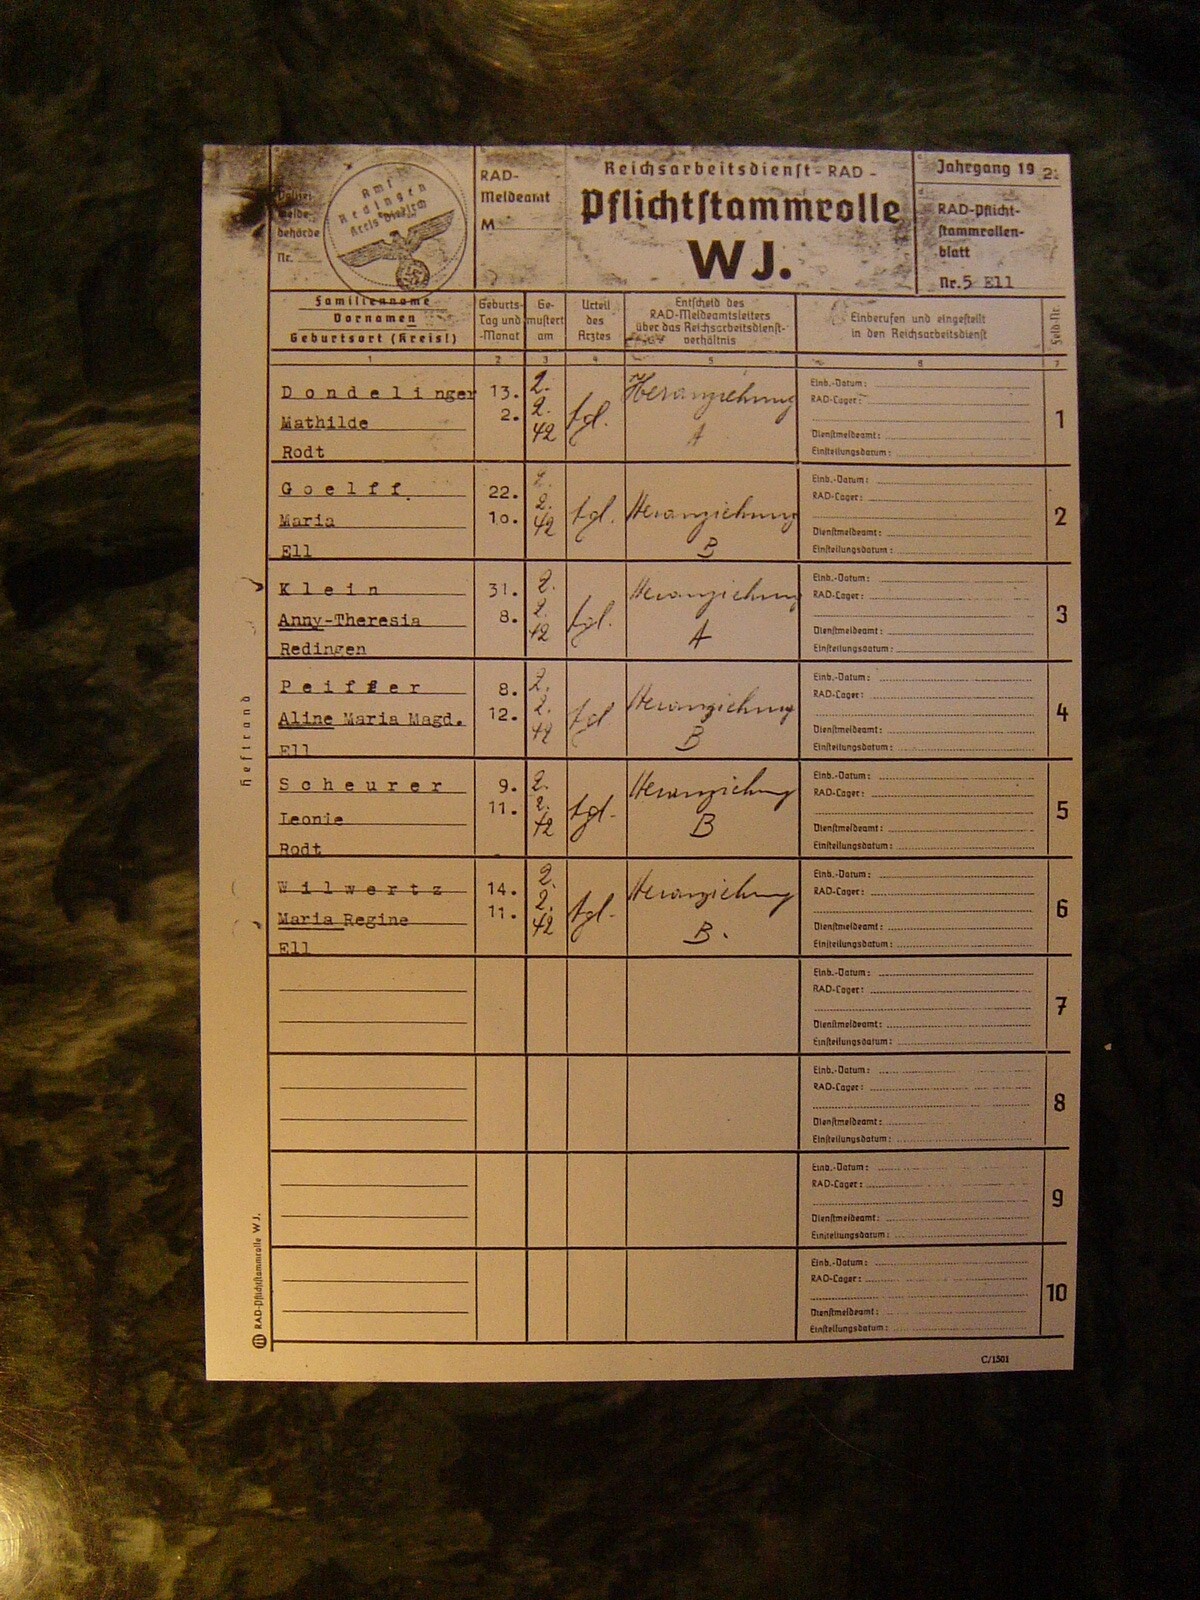 Polizei-
melde-
behörde
Nr.
Amt
Redingen
Kreis Diekirch
RAD-
Meldeamt
M
Reichsarbeitsdienst - RAD -
Pflichtstammrolle
WJ.
Jahrgang 19 22
RAD-Pflicht-
stammrollen-
blatt
Nr. 5 Ell
Familienname
Vornamen
Geburtsort (Kreis!)
Geburts-
Tag und
-Monat
Ge-
mustert
am
Urteil
des
Arztes
Entscheid des
RAD-Meldeamtsleiters
über das Reichsarbeitsdienst-
verhältnis
Einberufen und eingestellt
in den Reichsarbeitsdienst
Feld-Nr.
1 2 3 4 5 6 7
Dondelinger
Mathilde
Rodt
13.
2.
2.
2.
42
tgl.
Heranziehung
A
Einb.-Datum:
RAD-Lager:
Dienstmeldeamt:
Einstellungsdatum:
1
Goelff
Maria
Ell
22.
10.
2.
2.
42
tgl.
Heranziehung
B
Einb.-Datum:
RAD-Lager:
Dienstmeldeamt:
Einstellungsdatum:
2
Klein
Anny-Theresia
Redingen
31.
8.
2.
2.
42
tgl.
Heranziehung
A
Einb.-Datum:
RAD-Lager:
Dienstmeldeamt:
Einstellungsdatum:
3
Peiffer
Aline Maria Magd.
Ell
8.
12.
2.
2.
42
tgl
Heranziehung
B
Einb.-Datum:
RAD-Lager:
Dienstmeldeamt:
Einstellungsdatum:
4
Scheurer
Leonie
Rodt
9.
11.
2.
2.
42
tgl.
Heranziehung
B
Einb.-Datum:
RAD-Lager:
Dienstmeldeamt:
Einstellungsdatum:
5
Wilwertz
Maria Regine
Ell
14.
11.
2.
2.
42
tgl.
Heranziehung
B.
Einb.-Datum:
RAD-Lager:
Dienstmeldeamt:
Einstellungsdatum:
6
Einb.-Datum:
RAD-Lager:
Dienstmeldeamt:
Einstellungsdatum:
7
Einb.-Datum:
RAD-Lager:
Dienstmeldeamt:
Einstellungsdatum:
8
Einb.-Datum:
RAD-Lager:
Dienstmeldeamt:
Einstellungsdatum:
9
Einb.-Datum:
RAD-Lager:
Dienstmeldeamt:
Einstellungsdatum:
10
Heftrand
RAD-Pflichtstammrolle WJ.
C/1501